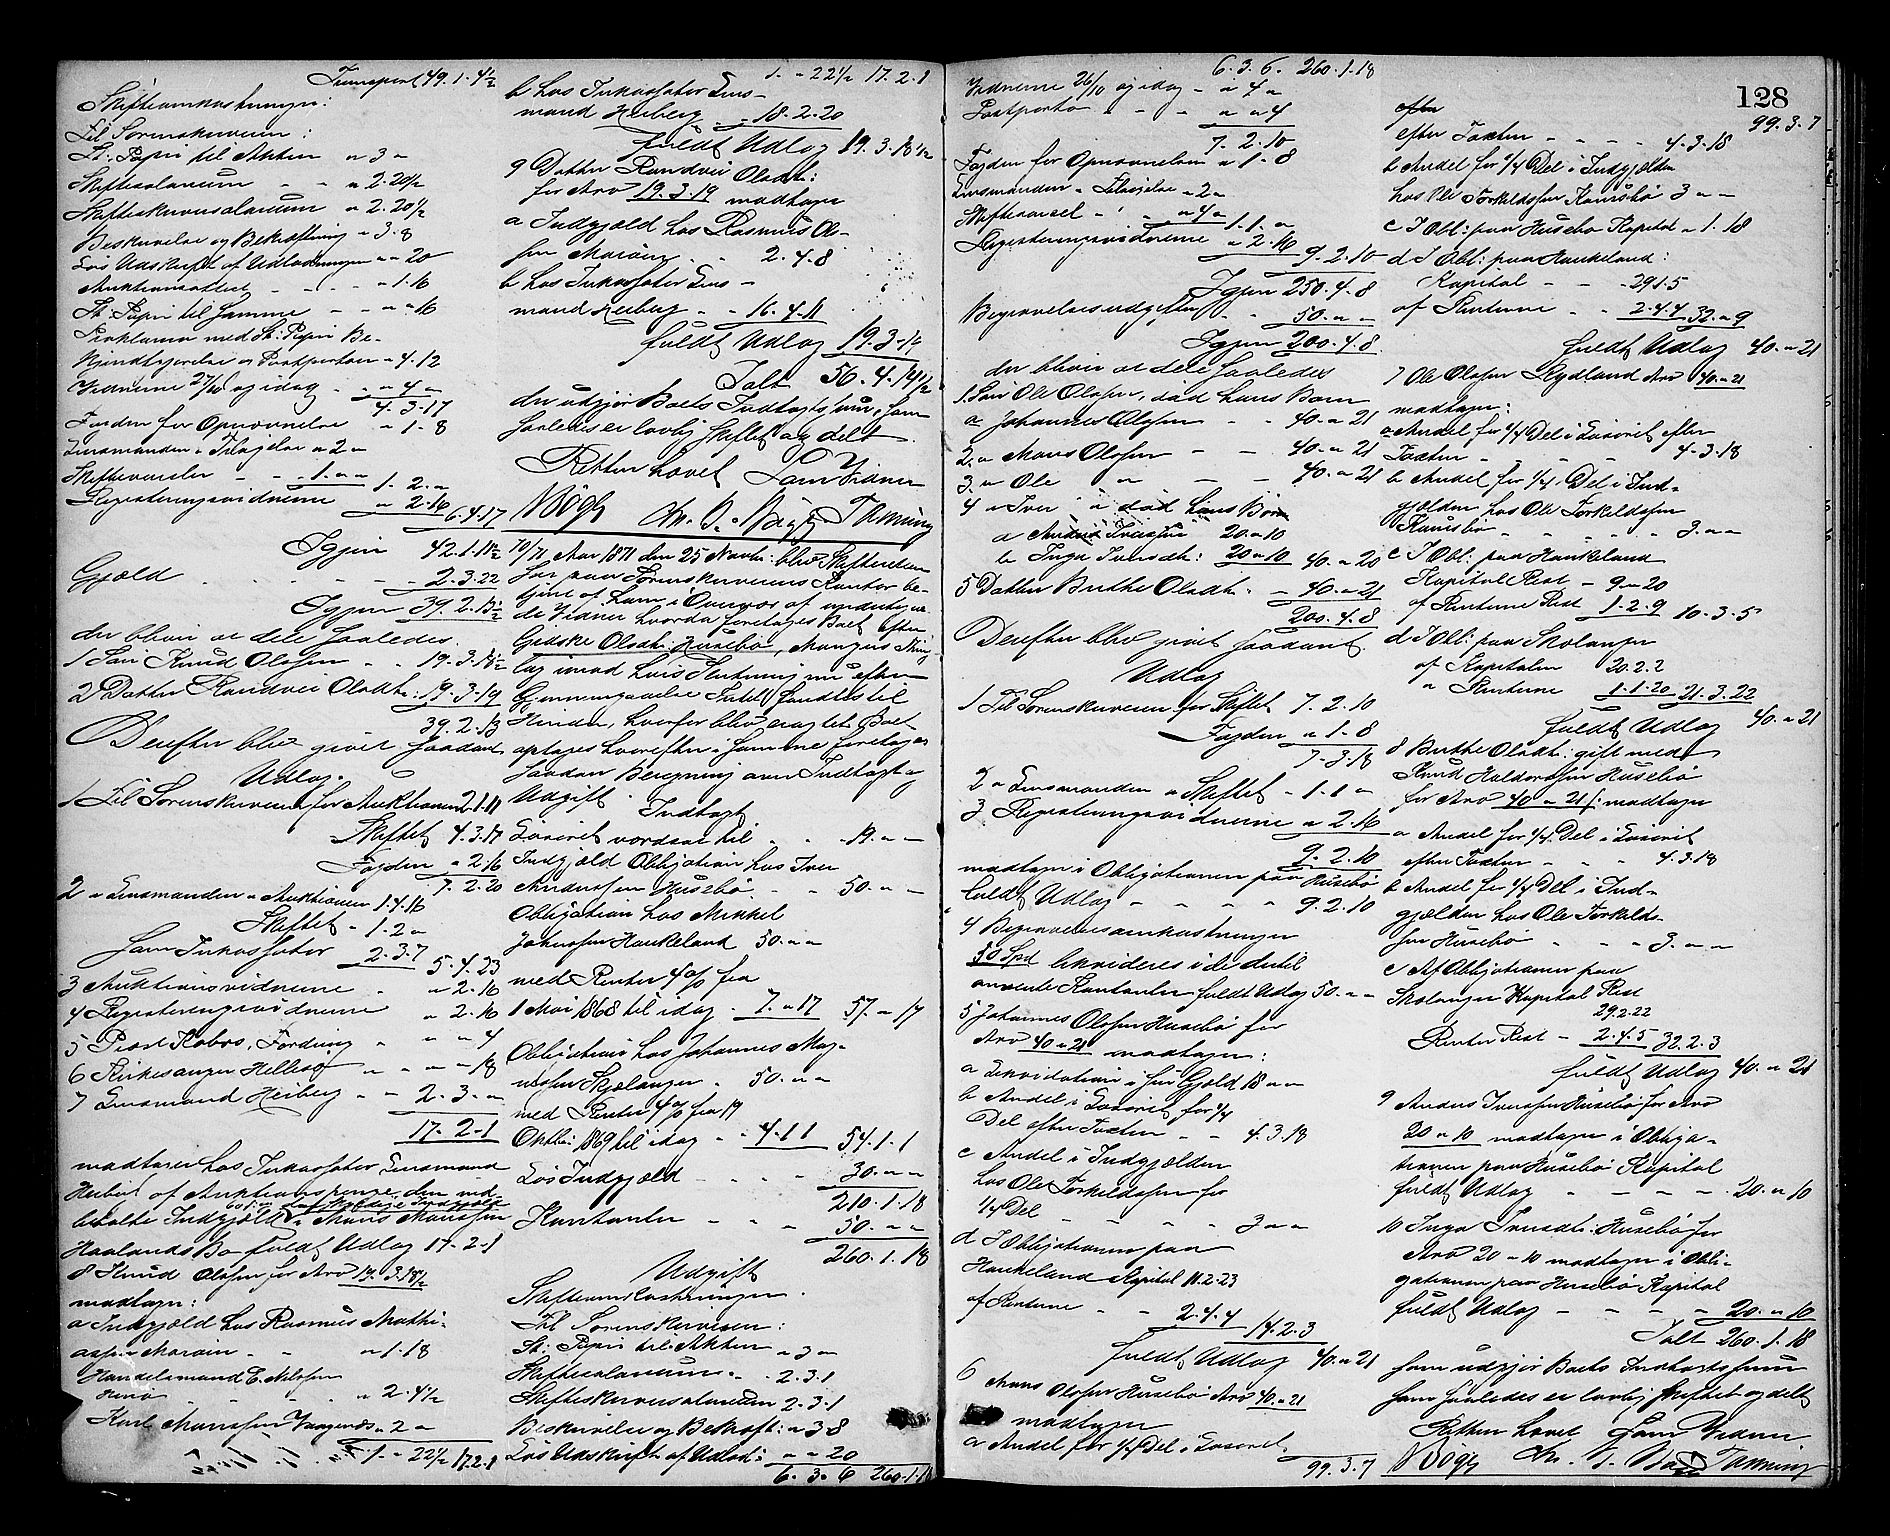 Transport 49. 1. 4½
Skifteomkostninger:
Til Sorenskriveren:
St. Papir til Akten " 3 "
Skiftesalarium " 2. 20½
Skifteskriversalarium " 2. 20½
Beskrivelse og Bekræftning " 3. 8
Løs Udskrift af Udlodningen " " 20
Auktionsattest " 1. 16
St. Papir til Samme " " 16
Proklama med St: Papir Be-
kjendtgjørelse og Postportoen " 4. 12
Vidnerne 27/10 og idag " 4 "
4. 3. 17
Fogden for Opnævnelse " 1. 8
Lensmanden " Tilsigelse " 2 "
Skifteværsel 1. " " 1. 2. "
Registreringsvidnerne " 2. 16
6. 4. 17
Igjen 42. 1. 11½
Gjæld 2. 3. 22
Igjen 39. 2. 13½
der bliver at dele saaledes
1 Søn Knud Olsen 19. 3. 18½
2 Datter Randvei Olsdt: 19. 3. 19
39. 2. 13
Derefter blev givet saadant
Udlæg.
1 Til Sorenskriveren for Auktionen 2. 1. 11
Skiftet 4. 3. 17
Fogden " 2. 16
7. 2. 20
2 " Lensmanden " Auktionen 1. 4. 16
Skiftet " 1. 2 "
som Inkassator 2. 3. 7
5. 4. 23
3 Auktionsvidnerne " 2. 16
4 Registreringsvidnerne " 2. 16
5 Peder Kobros, Fordring " " 4
6 Kirkesanger Hellesø " " " 18
7 Lensmand Heiberg 2. 3. "
17. 2. 1
modtager hos Inkassator Lensmand
Heiberg af Auktionspenge, den ind-
beholdte Indgjæld i Mons Monssen
Haalands Bo fuldt Udlæg 17. 2. 1
8 Knud Olsen for Arv 19. 3. 18½
modtager:
a Indgjæld hos Rasmus Mathi-
assen Morøen " 1. 18
Handelsmand C. Nilssen
Herø " 2. 4½
Karl Monssen Vaagenæs " 2 "
1. " 22½ 17. 2. 1
1. " 22½ 17. 2. 1
b hos Inkassator Lens-
mand Heiberg 18. 2. 20
fuldt Udlæg 19. 3. 18½
9 Datter Randvei Olsdt:
for Arv 19. 3. 19 modtager
a Indgjæld hos Rasmus Ol-
sen Morøen 2. 4. 8
b hos Inkassator Lens-
mand Heiberg 16. 4. 11
fuldt Udlæg 19. 3. 19
Ialt 56. 4. 14½
der udgjør Boets Indtægtssum, som
saaledes er lovlig skiftet og delt
Retten hævet Som Vidner
Bøgh
10/11 Aar 1871 den 25 Novbr: blev Skifteretten
sat paa Sorenskriverens Kontor be-
tjent af ham i Overvær af undertegne-
de Vidner hvorda foretages Boet efter
Gidske Olsdt: Husebø, Mangers Thing-
lag imod hvis Slutning nu efter
Gjennemgaaelse Intet fandtes til
Hinder, hvorfor blev eragtet Boet
optages hvorefter i samme foretages
saadan Beregning over Indtægt og
Udgift.
Indtægt
Løsøret vurderet til 19. " "
Indgjæld Obligation hos Iver
Anderssen Husebø 50. " "
Obligation hos Mikkel
Johnssen Haukeland 50. " "
med Renter 4 % fra
1 Mai 1868 til idag 7. " 17 57. " 17
Obligation hos Johannes Mog-
nussen Skjelanger 50. " "
med Renter 4 % fra 19
Oktbr: 1869 til idag 4. 1 1 54. 1. 1
Løs Indgjæld 30. " "
210. 1. 18
Kontanter 50. " "
260. 1. 18
Udgift
Skifteomkostninger.
Til Sorenskriveren:
St: Papir til Akten " 3 "
Skiftesalarium 2. 3. 1
Skifteskriversalarium 2. 3. 1
Beskrivelse og Bekræft: " 3. 8
Løs Udskrift af Udlod: " " 20
6. 3. 6 260. 1. 18
6. 3. 6. 260. 1. 18
Vidnerne 26/10 og idag " 4 "
Postporto " " 4
7. 2. 10
Fogden for Opnævnelsen " 1. 8
Lensmanden " Tilsigelse " 2 "
Skifteværsel " 4 "
1. 1. "
Registreringsvidnerne " 2. 16
9. 2. 10
Igjen 250. 4. 8
Begravelsesudgifter 50. " "
Igjen 200. 4. 8
der bliver at dele saaledes
1. Søn Ole Olsen, død hans Barn
a Johannes Olssen 40. " 21
2. " Mons Olsen 40. " 21
3. " Ole " 40. " 21
4 " Iver " død hans Børn
a Anders Iverssen 20. " 10
b Inga Iversdt: 20 " 10 40. " 20
5 Datter Brithe Olsdt: 40. " 21
200. 4. 8
Derefter blev givet saadant
Udlæg
1 Til Sorenskriveren for Skiftet 7. 2. 10
Fogden " 1. 8
7. 3. 18
2 " Lensmanden " Skiftet 1. 1 "
3 Registreringsvidnerne " 2. 16
9. 2. 10
modtager i Obligationen paa Husebø
fuldt Udlæg 9. 2. 10
4 Begravelsesomkostninger
50 Spd likvideres i de dertil
anvente Kontanter fuldt Udlæg 50. " "
5 Johannes Olsen Husebø for
Arv 40 " 21 modtager:
a Likvidation i sin Gjæld 18 " "
b Andel i Løsøret for ¼
Del efter Taxten 4. 3. 18
c Andel i Indgjælden
hos Ole Torkildssen for
¼ Del 3 " "
d I Obligationen paa
Haukeland Kapital 11. 2. 23
af Renterne 2. 4. 4
14. 2. 3
fuldt Udlæg 40. " 21
6 Mons Olssen Husebø Arv 40. " 21
modtager
a Andel for ¼ Del i Løsøret
99. 3. 7
128
99. 3. 7
efter Taxten 4. 3. 18
b Andel for ¼ Del i Indgjælden
hos Ole Torkildssen Kausebø 3 " "
c I Obl: paa Husebø Kapital " 1. 18
d I Obl: paa Haukeland:
Kapital 29 1. 5
af Renterne 2. 4. 4 32. " 9
fuldt Udlæg 40. " 21
7 Ole Olsen Rydland Arv 40. " 21
modtager:
a Andel for ¼ Del i Løsøret efter
Taxten 4. 3. 18
b Andel for ¼ Del i Ind-
gjælden hos Ole Torkildssen
Kausebø 3. " "
c I Obl: paa Haukeland
Kapital Rest 9 " 20
af Renterne Rest 1. 2. 9 10. 3. 5
d I Obl: paa Skolanger
af Kapitalen 20. 2. 2
" Renterne 1. 1. 20 21. 3. 22
fuldt Udlæg 40. " 21
8 Brithe Olsdt: gift med
Knud Haldorssen Husebø
for Arv 40 " 21 modtager
a Andel for ¼ Del i Løsøret
efter Taxten 4. 3. 18
b Andel for ¼ Del i Ind-
gjælden hos Ole Torkilds-
sen Husebø 3. " "
c Af Obligationen paa
Skolanger Kapital Rest
29. 2. 22
Renter Rest 2. 4. 5 32. 2. 3
fuldt Udlæg 40. " 21
9 Anders Iverssen Husebø for Arv
20 " 10 modtager i Obliga-
tionen paa Husebø Kapital
fuldt Udlæg 20. " 10
10 Inga Iversdt: Husebø for
Arv 20 " 10 modtager i Obli-
gationen paa Husebø Kapital
fuldt Udlæg 20. " 10
Ialt 260. 1. 18
som udgjør Boets Indtægtssum
som saaledes er lovlig skiftet og delt
Retten hævet Som Vidner
Bøgh